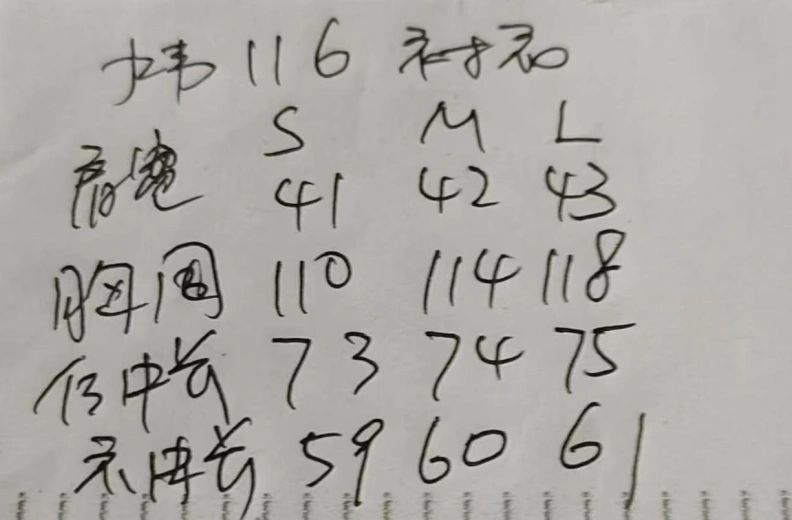 116 衬衫
S M L
肩宽 41 42 43
胸围 110 114 118
后中长 73 74 75
衣连长 59 60 61